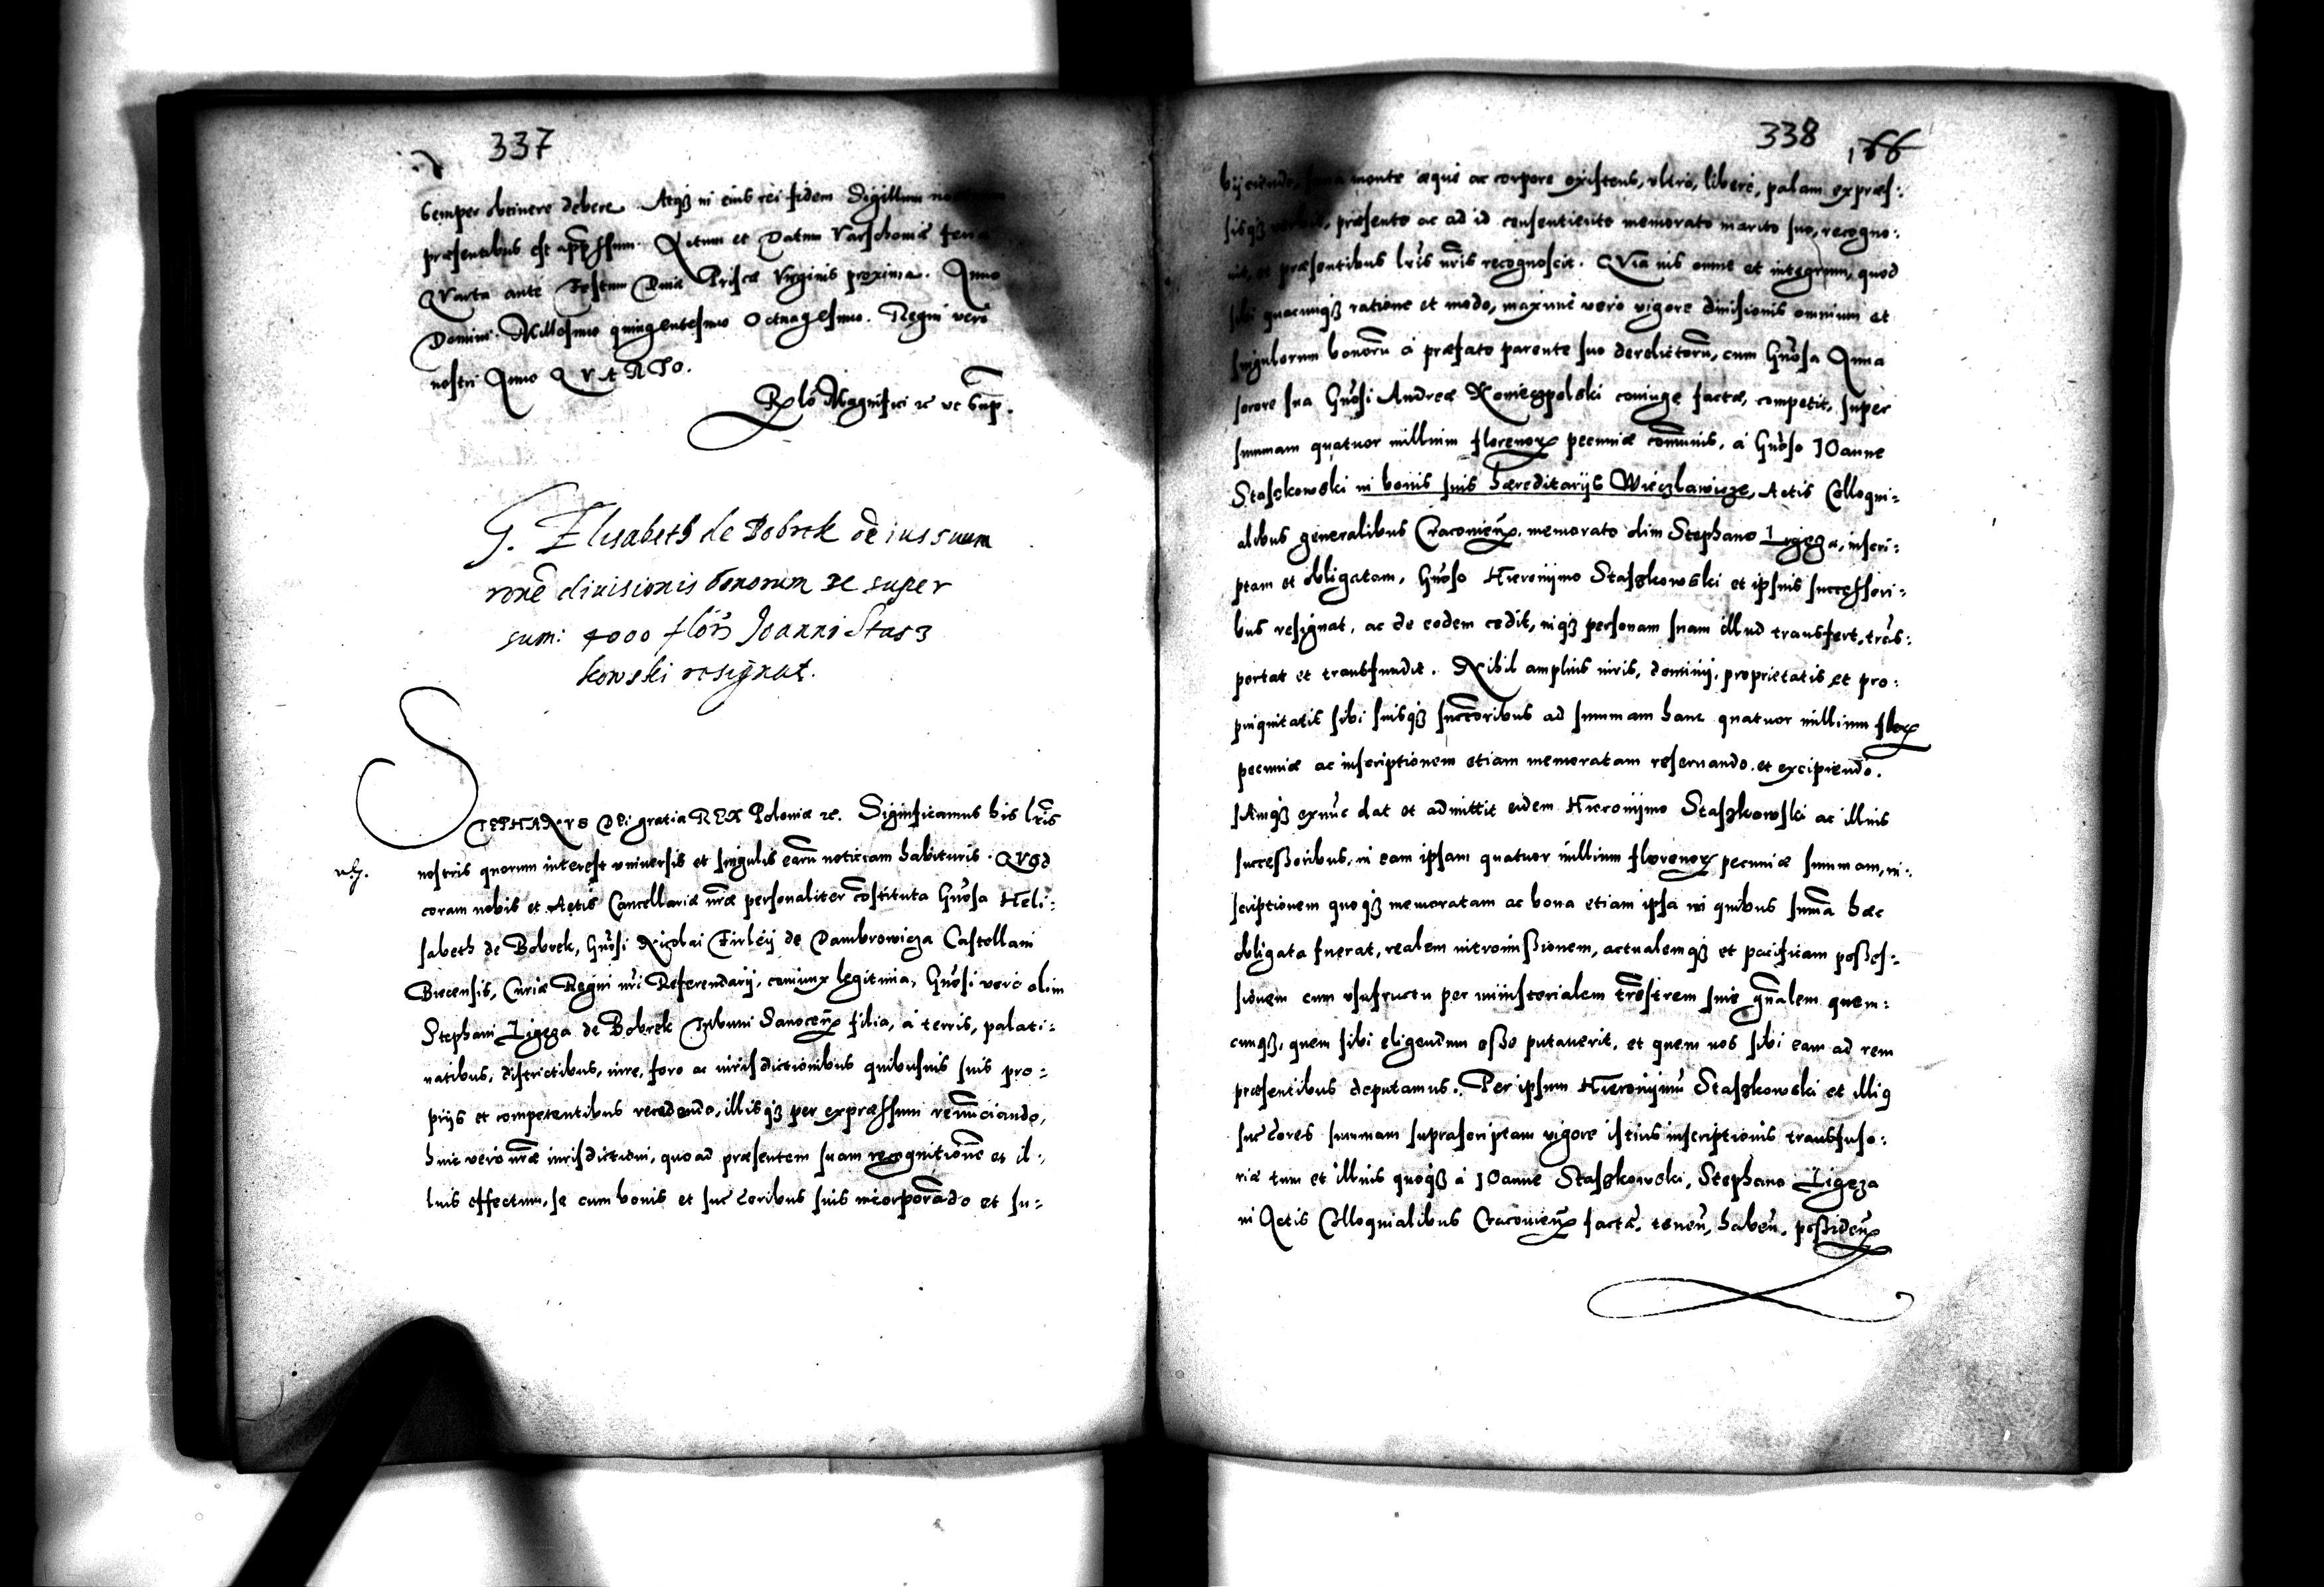 337
semper obtinere debere. Atqз in eius rei fidem Sigillum
præsentibus est appressum. Actum et Datum Varschouiæ feria
QVarta ante Festum Diuæ Priscæ Virginis proxima. Anno
Domini Millesimo quingentesimo Octuagesimo. Regni vero
nostri Anno QVARTO.
Rlo Magnifici &c vt Sup.
G. Elisabeth de Bobrek de ius suum
rone diuisionis bonorum de super
sum: 4000 flor Joanni Stasz
kowski resignat.
STEPHANVS Dei gratia REX Poloniæ &c. Significamus his lris
nostris quorum interest vniuersis et singulis earu noticiam habituris. QVod
coram nobis et Actis Cancellariæ nræ personaliter costituta Gnosa Heli:
sabeth de Bobrek, Gnosi Nicolai Firleij de Dambrowicza Castellani
Biecensis, Curiæ Regni nri Referendarij, coniunx legitima, Gnosi vero olim
Stephani Ligęza de Bobrek Tribuni Sanocen filia, a terris, palati:
natibus, districtibus, iure, foro ac iurisdictionibus quibusuis suis pro:
prijs et competentibus recedendo, illisqз per expræssum renunciando,
huic vero nræ iurisdictioni, quo ad præsentem suam recognitione et il:
lius effectum, se cum bonis et succoribus suis incorporado et su:
338 166
bijciendo, mente æque ac corpore existens, vltro, libere, palam expræs:
sisqз præsente ac ad id consentiente memorato marito suo, recogno:
uit, et præsentibus lris nris recognoscit. QVia ius omne et integrum, quod
sibi quacunqз ratione et modo, maxime vero vigore diuisionis omnium et
singulorum bonoru a præfato parente suo derelictoru, cum Gnosa Anna
sorore sua Gnosi Andreæ Koniecpolski coniuge factæ, competit, super
summam quatuor millium florenor pecuniæ comunis, a Gnoso IOanne
Staszkowski in bonis suis hæreditarijs Wieczlawicze, Actis Colloqui:
alibus generalibus Cracouien. memorato olim Stephano Ligęza, inscri:
ptam et obligatam, Gnoso Hieronijmo Staszkowski et ipsius successori:
bus resignat, ac de eodem cedit, inqз personam suam illud transfert, tras:
portat et transfundit. Nihil amplius iuris, dominij, proprietatis et pro:
pinquitatis sibi suisqз succoribus ad summam hanc quatuor millium flor
pecuniæ ac inscriptionem etiam memoratam reseruando et excipiendo.
Amqз exnuc dat et admittit eidem Hieronijmo Staszkowski ac illius
successoribus, in eam ipsam quatuor millium florenor pecuniæ summam, in:
scriptionem quoqз memoratam ac bona etiam ipsa in quibus suma hæc
obligata fuerat, realem intromissionem, actualemqз et pacificam posses:
sionem cum vsufructu per ministerialem trrestrem siue gnalem quem:
cunqз, quem sibi eligendum esse putauerit, et quem nos sibi eam ad rem
præsentibus deputamus. Per ipsum Hieronijmu Staszkowski et illig
succores summam suprascriptam vigore istius inscriptionis transfuso:
riæ tum et illius quoqз a IOanne Staszkowski, Stephano Ligęza
in Actis Colloquialibus Cracouien factæ, tenen, haben, possiden